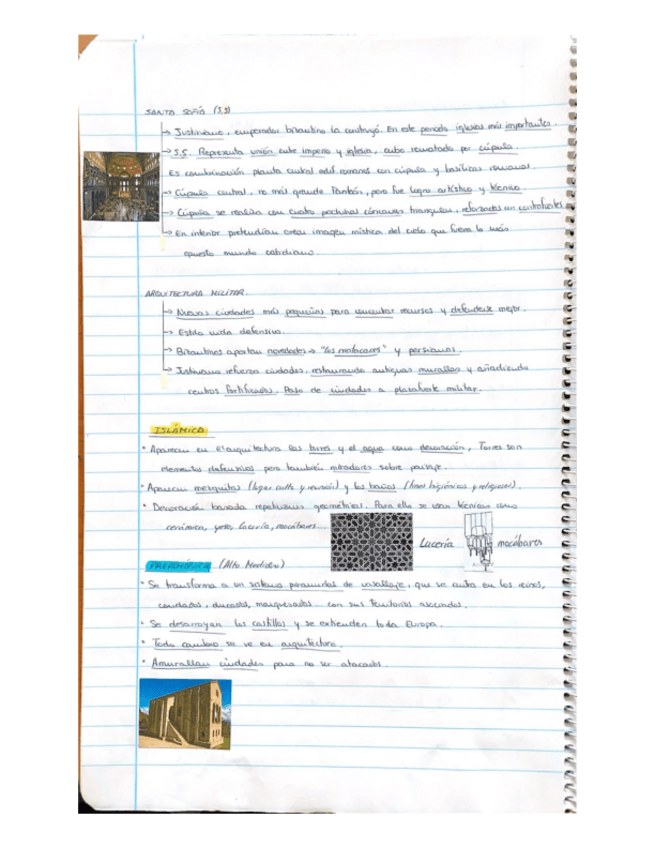 SANTA SOFÍA (S.S)
→ Justiniano, emperador bizantino la construyó. En este periodo iglesias más importantes.
→ S.S. Representa unión entre imperio y iglesia, cubo rematado por cúpula.
Es combinación planta central edif. romanos con cúpula y basílicas romanas.
→ Cúpula central, no más grande Panteón, pero fue logro artístico y técnico
→ Cúpula se realiza con cuatro pechinas cóncavas triangulares, reforzadas con contrafuertes
→ En interior pretendían crear imagen mística del cielo que fuera lo más
opuesto mundo cotidiano.
ARQUITECTURA MILITAR.
→ Nuevas ciudades más pequeñas para aumentar recursos y defenderse mejor.
→ Estilo vida defensivo.
→ Bizantinos aportan novedades → "los matacanes" y persianas.
→ Justiniano refuerza ciudades, restaurando antiguas murallas y añadiendo
centros fortificados. Paso de ciudades a plazafuerte militar.
ISLÁMICA
• Aparecen en el arquitectura las torres y el agua como decoración, Torres son
elementos defensivos pero también miradores sobre paisaje.
• Aparecen mezquitas (lugar culto y reunión) y los baños (fines higiénicos y religiosos).
• Decoración basada repeticiones geométricas. Para ello se usan técnicas como
cerámica, yeso, lacería, mocábares...
Lacería
mocábares
PRERROMÁNICA (Alta Medieval)
• Se transforma a un sistema piramidal de vasallaje, que se centra en los reinos,
condados, ducados, marquesados con sus territorios
• Se desarroyan los castillos y se extienden toda Europa.
• Todo cambio se ve en arquitectura.
• Amurallan ciudades para no ser atacados